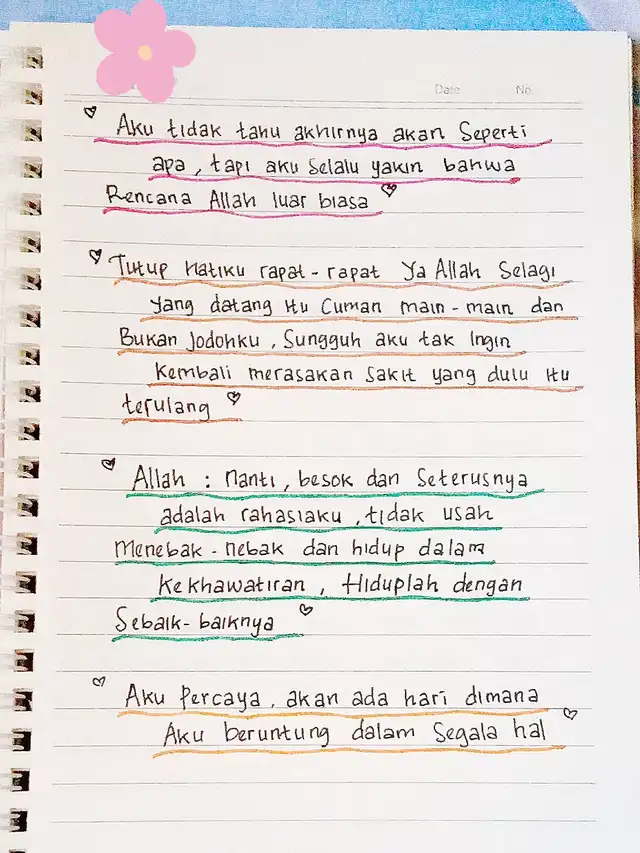 Date No
Aku tidak tahu akhirnya akan Seperti
apa, tapi aku Selalu yakin bahwa
Rencana Allah luar biasa
Tutup Hatiku rapat-rapat Ya Allah Selagi
yang datang itu Cuman main-main dan
Bukan Jodohku, Sungguh aku tak Ingin
Kembali merasakan Sakit yang dulu itu
terulang
Allah : Nanti, besok dan Seterusnya
adalah rahasiaku, tidak usah
Menebak-nebak dan hidup dalam
Kekhawatiran, Hiduplah dengan
Sebaik-baiknya
Aku Percaya, akan ada hari dimana
Aku beruntung dalam Segala hal